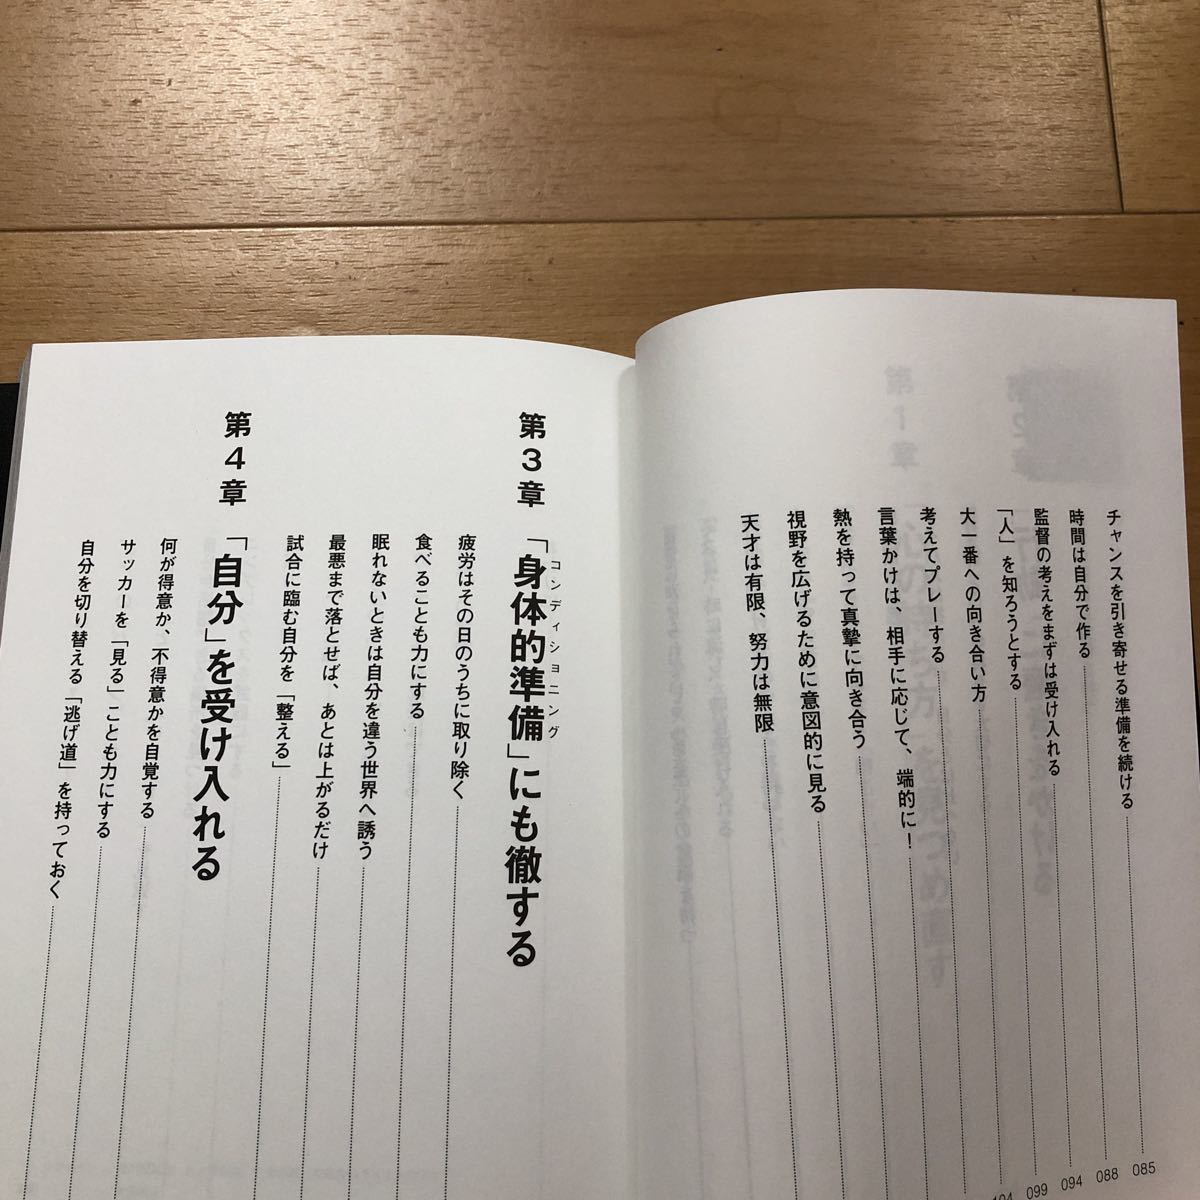 チャンスを引き寄せる準備を続ける 085
時間は自分で作る 088
監督の考えをまずは受け入れる 094
「人」を知ろうとする 099
大一番への向き合い方
考えてプレーする
言葉かけは、相手に応じて、端的に！
熱を持って真摯に向き合う
視野を広げるために意図的に見る
天才は有限、努力は無限
第3章 「身体的準備」にも徹する
コンディショニング
疲労はその日のうちに取り除く
食べることも力にする
眠れないときは自分を違う世界へ誘う
最悪まで落とせば、あとは上がるだけ
試合に臨む自分を「整える」
第4章 「自分」を受け入れる
何が得意か、不得意かを自覚する
サッカーを「見る」ことも力にする
自分を切り替える「逃げ道」を持っておく